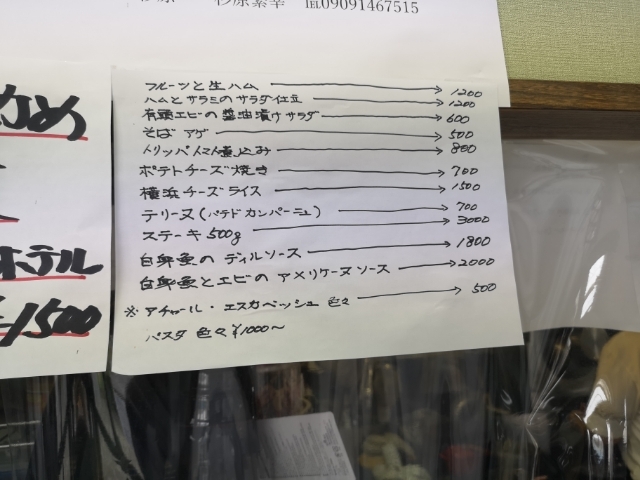 杉原素幸 ℡09091467515
フルーツと生ハム → 1200
ハムとサラミのサラダ仕立 → 1200
有頭エビの醤油漬けサラダ → 600
そば アゲ → 500
トリッパトマト煮込み → 800
ポテトチーズ焼き → 700
横浜チーズライス → 1500
テリーヌ(パテドカンパーニュ) → 700
ステーキ 500g → 3000
白身魚の ディルソース → 1800
白身魚とエビの アメリケーヌソース → 2000
※ アチャール・エスカベッシュ 色々 → 500
パスタ 色々 ¥1000~
ホテル
1500